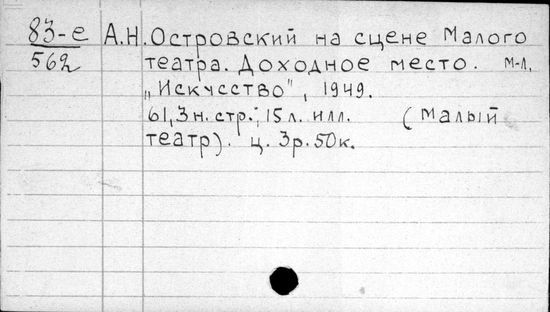 83-е А.Н. Островский на сцене Малого
562 театра. Доходное место. М-Л,
„Искусство", 1949.
61, 3 н. стр.; 15 л. илл. (Малый
театр). ц. 3р. 50к.